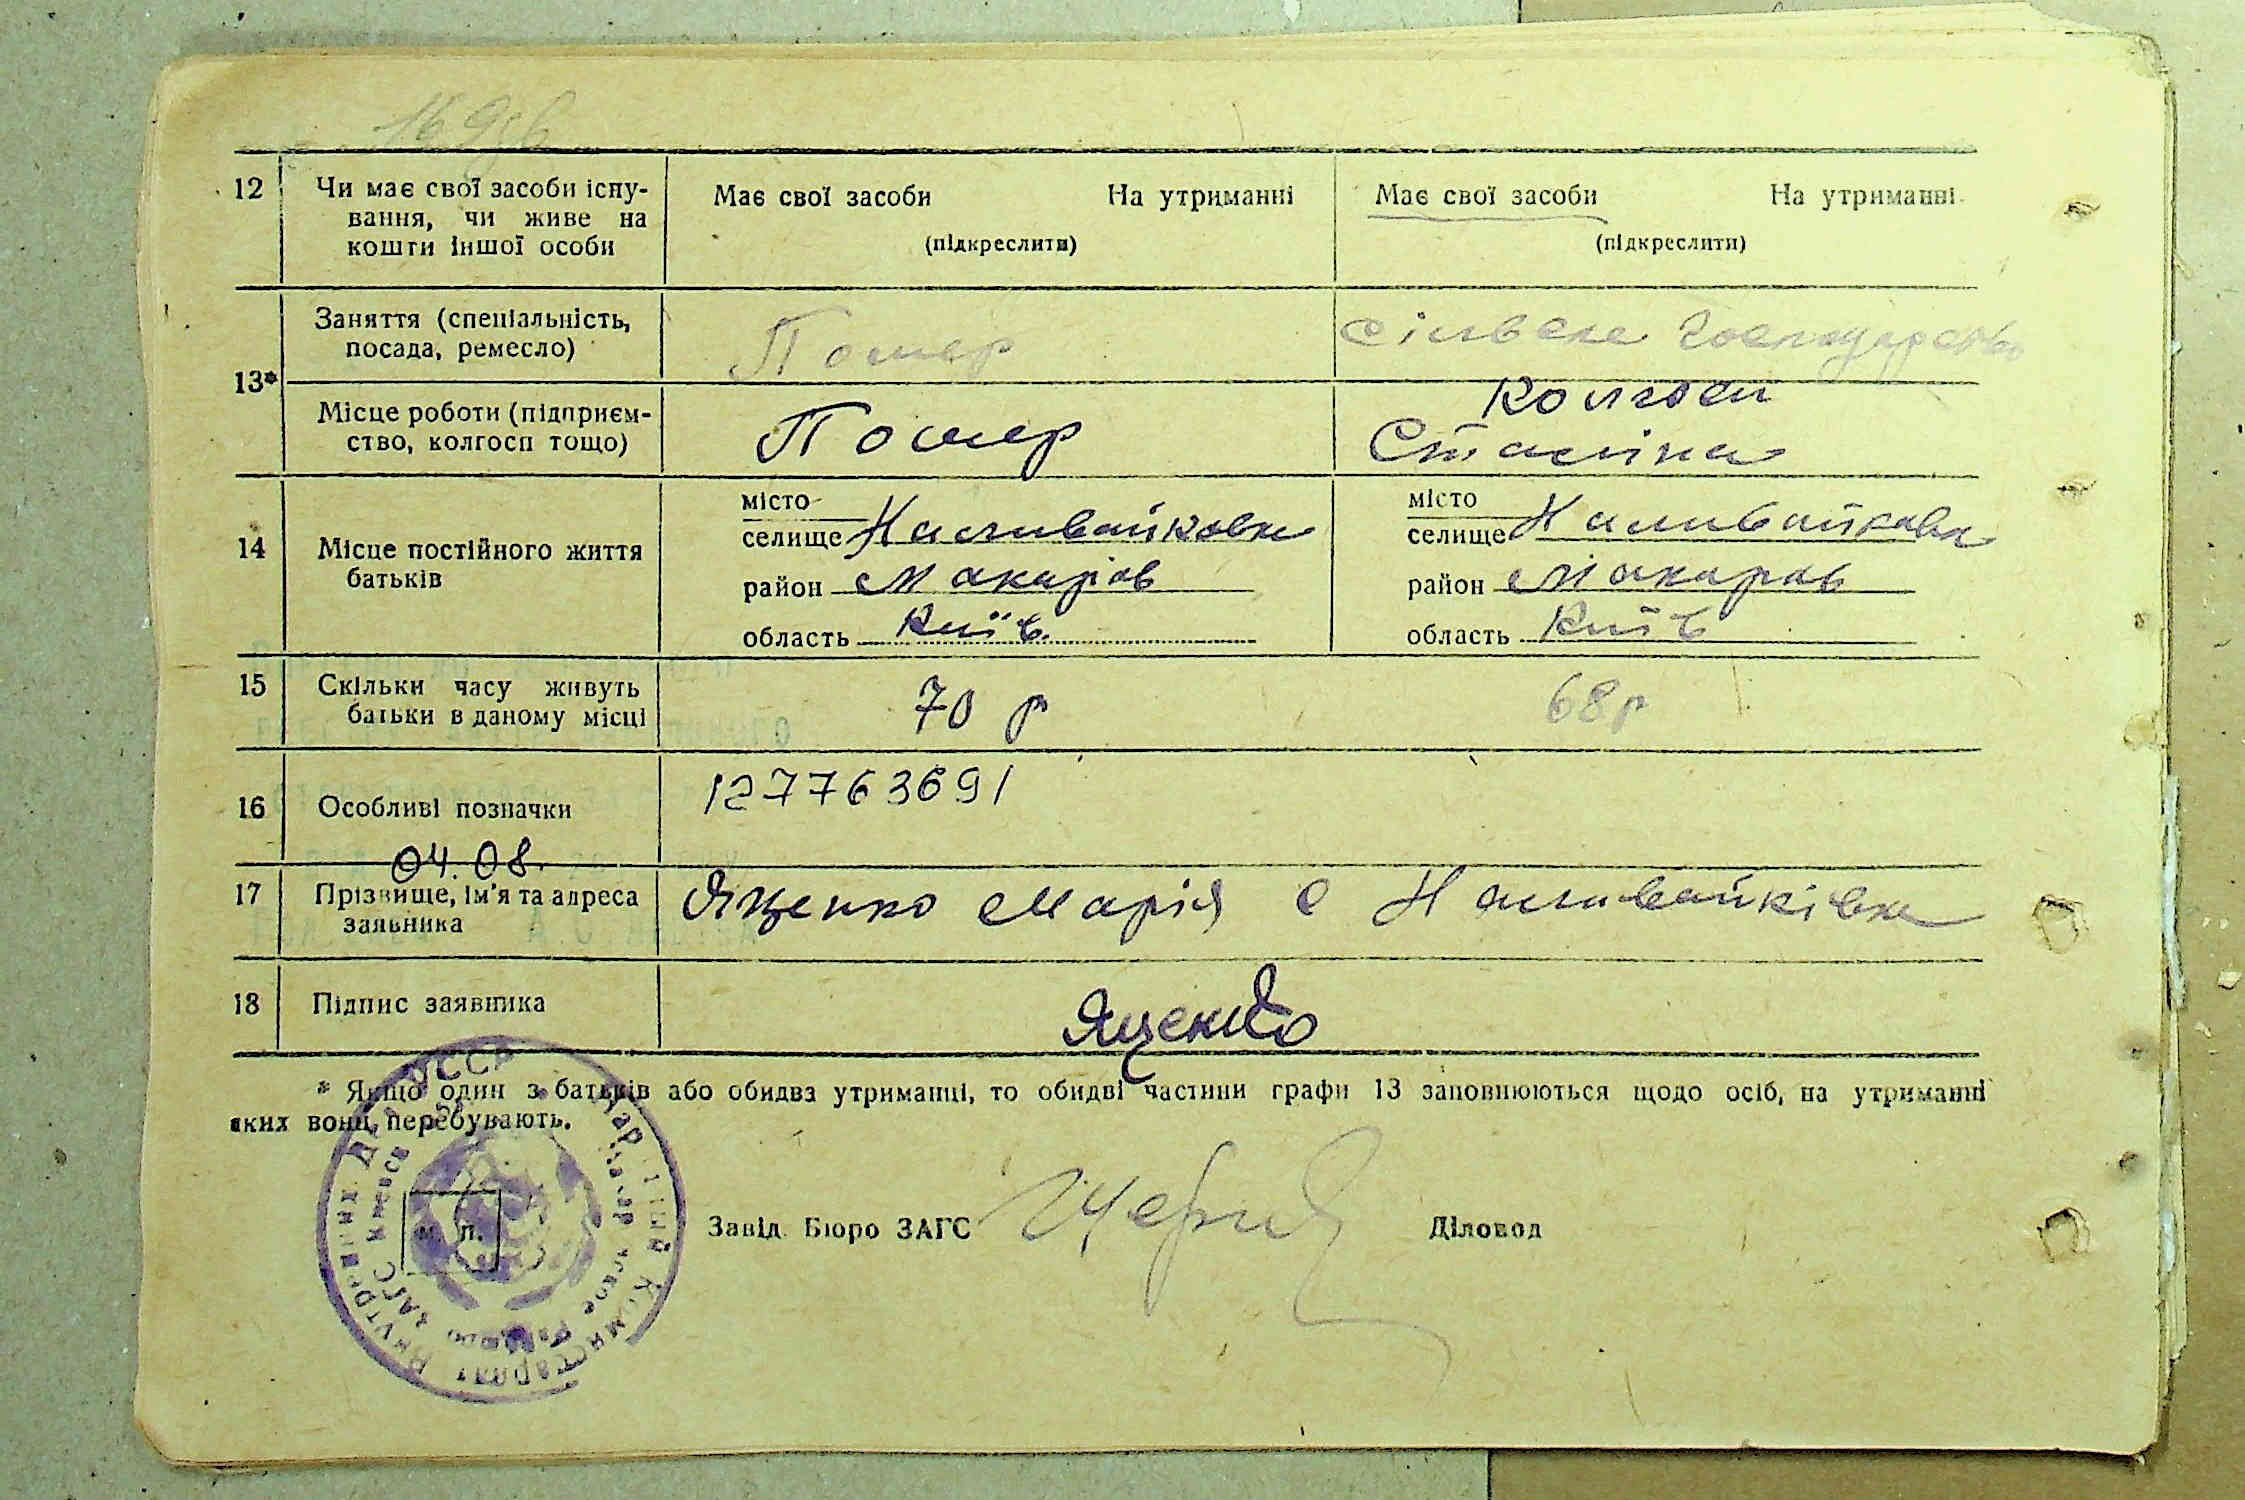 12 Чи має свої засоби існу-
вання, чи живе на
кошти іншої особи
Має свої засоби На утриманні
(підкреслити)
Має свої засоби На утриманні
(підкреслити)
13*
Заняття (спеціальність,
посада, ремесло)
Помер
сільське господарство
Місце роботи (підприєм-
ство, колгосп тощо)
Помер
Колгосп
Сталіна
14 Місце постійного життя
батьків
місто
селище Наливайковка
район Макарів
область Київ
місто
селище Наливайковка
район Макаров
область Київ
15 Скільки часу живуть
батьки в даному місці
70 р
68 р
16 Особливі позначки
127763691
04.08.
17 Прізвище, ім'я та адреса
заявника
Яценко Марія с Наливайківка
18 Підпис заявника
Яценко
* Якщо один з батьків або обидва утриманці, то обидві частини графи 13 заповнюються щодо осіб, на утриманні
яких вони перебувають.
м. п.
Завід. Бюро ЗАГС
Діловод